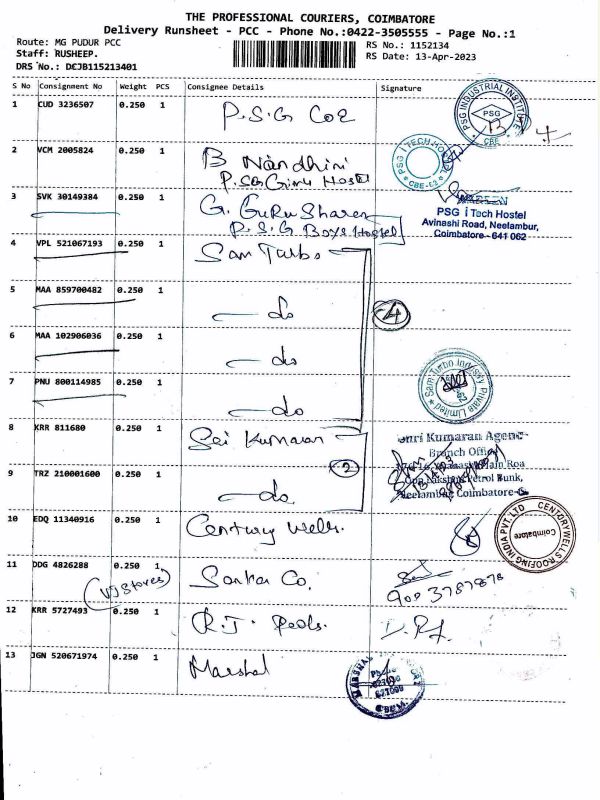 THE PROFESSIONAL COURIERS, COIMBATORE
Delivery Runsheet - PCC - Phone No.:0422-3505555 - Page No.:1
Route: MG PUDUR PCC
Staff: RUSHEEP.
DRS No.: DEJB115213401
RS No.: 1152134
RS Date: 13-Apr-2023
S No Consignment No Weight PCS Consignee Details Signature
1 CUD 3236507 0.250 1 P.S.G COE
PSG INDUSTRIAL INSTITUTE
PSG
CBE
2 VCM 2005824 0.250 1 B Nandhini
P.SG Girls Hostel
PSG iTECH HOSTEL
CBE-62
3 SVK 30149384 0.250 1 G. Guru Sharen
P.S.G Boys Hostel
WARDEN
PSG iTech Hostel
Avinashi Road, Neelambur,
Coimbatore - 641 062
4 VPL 521067193 0.250 1 Sam Turbo
5 MAA 859700482 0.250 1 do
4
6 MAA 102906036 0.250 1 do
7 PNU 800114985 0.250 1 do
Sam Turbo Industry Private Limited
8 KRR 811680 0.250 1 Sai Kumaran
2
Shri Kumaran Agency
Branch Office
Main Roa
Opp. Lakshmi Petrol Bunk,
Neelambur Coimbatore-
9 TRZ 210001600 0.250 1 do
10 EDQ 11340916 0.250 1 Century Wells.
CENTORYWELLS ROOFING INDIA PVT.LTD
Coimbatore
11 DDG 4826288 0.250 1 Sankar Co.
(VJ Stores)
9083787878
12 KRR 5727493 0.250 1 R.J. Peols.
13 JGN 520671974 0.250 1 Marshal
MARSHAL